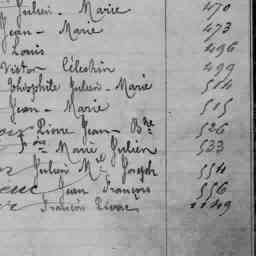 Julien - Marie 470
Jean - Marie 473
Louis 496
Victor Célestin 499
Théophile Julien - Marie 514
Jean - Marie 515
Pierre Jean - Bte 526
Fois Marie Julien 533
Julien Mel Joseph 554
Jean François 556
François Pierre 2149